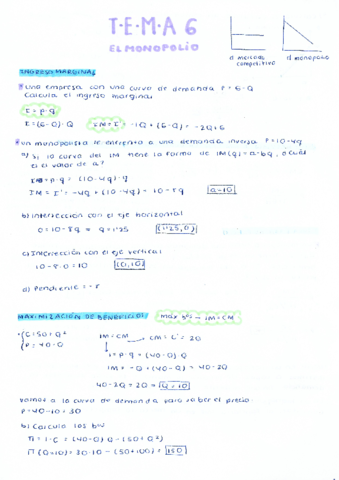 T·E·M·A 6
EL MONOPOLIO
el mercado competitivo
el monopolio
INGRESO MARGINAL
Una empresa con una curva de demanda P=6-Q
Calcula el ingreso marginal
I = P·Q
I=(6-Q)·Q IM=I'= -1Q+(6-Q)= -2Q+6
Un monopolista se enfrenta a una demanda inversa P=10-4q
a) Si la curva del IM tiene la forma de IM(q)=a-bq, ¿cuál
es el valor de a?
IM=p·q = (10-4q)·q
IM=I'= -4q+(10-4q)= 10-8q a=10
b) Intersección con el eje horizontal
0=10-8q → q=1'25 (1'25,0)
c) Intersección con el eje vertical
10-8·0=10 (0,10)
d) Pendiente = -8
MAXIMIZACIÓN DE BENEFICIOS: máx bº → IM=CM
C=50+Q²
P=40-Q
IM=CM
CM=C'=2Q
I=P·Q=(40-Q)·Q
IM= -Q+(40-Q)= 40-2Q
40-2Q=2Q → Q=10
Vamos a la curva de demanda para saber el precio
P=40-10=30
b) Calcula los bos
Π=I-C=(40-Q)·Q-(50+Q²)
Π(Q=10)=30·10-(50+100)=150